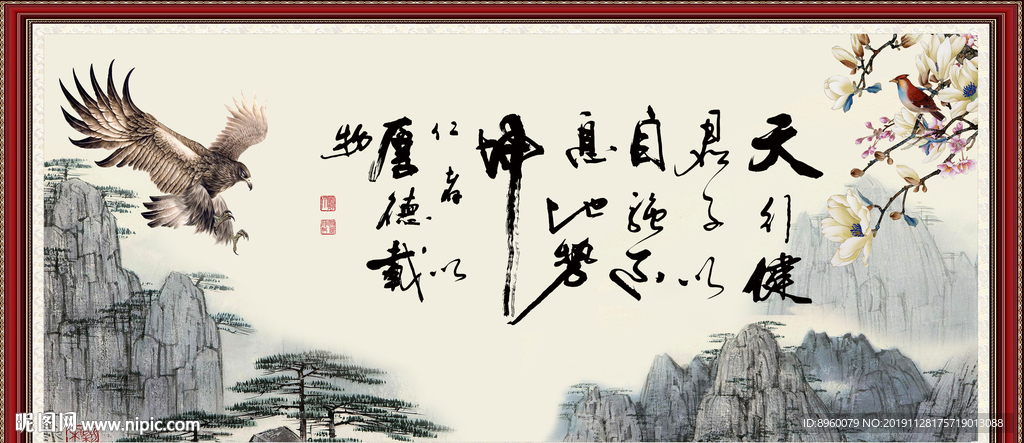 天行健
君子以
自強不
息地勢
坤
仁者以
厚德載
物
昵图网 www.nipic.com
ID:8960079 NO:20191128175719013088